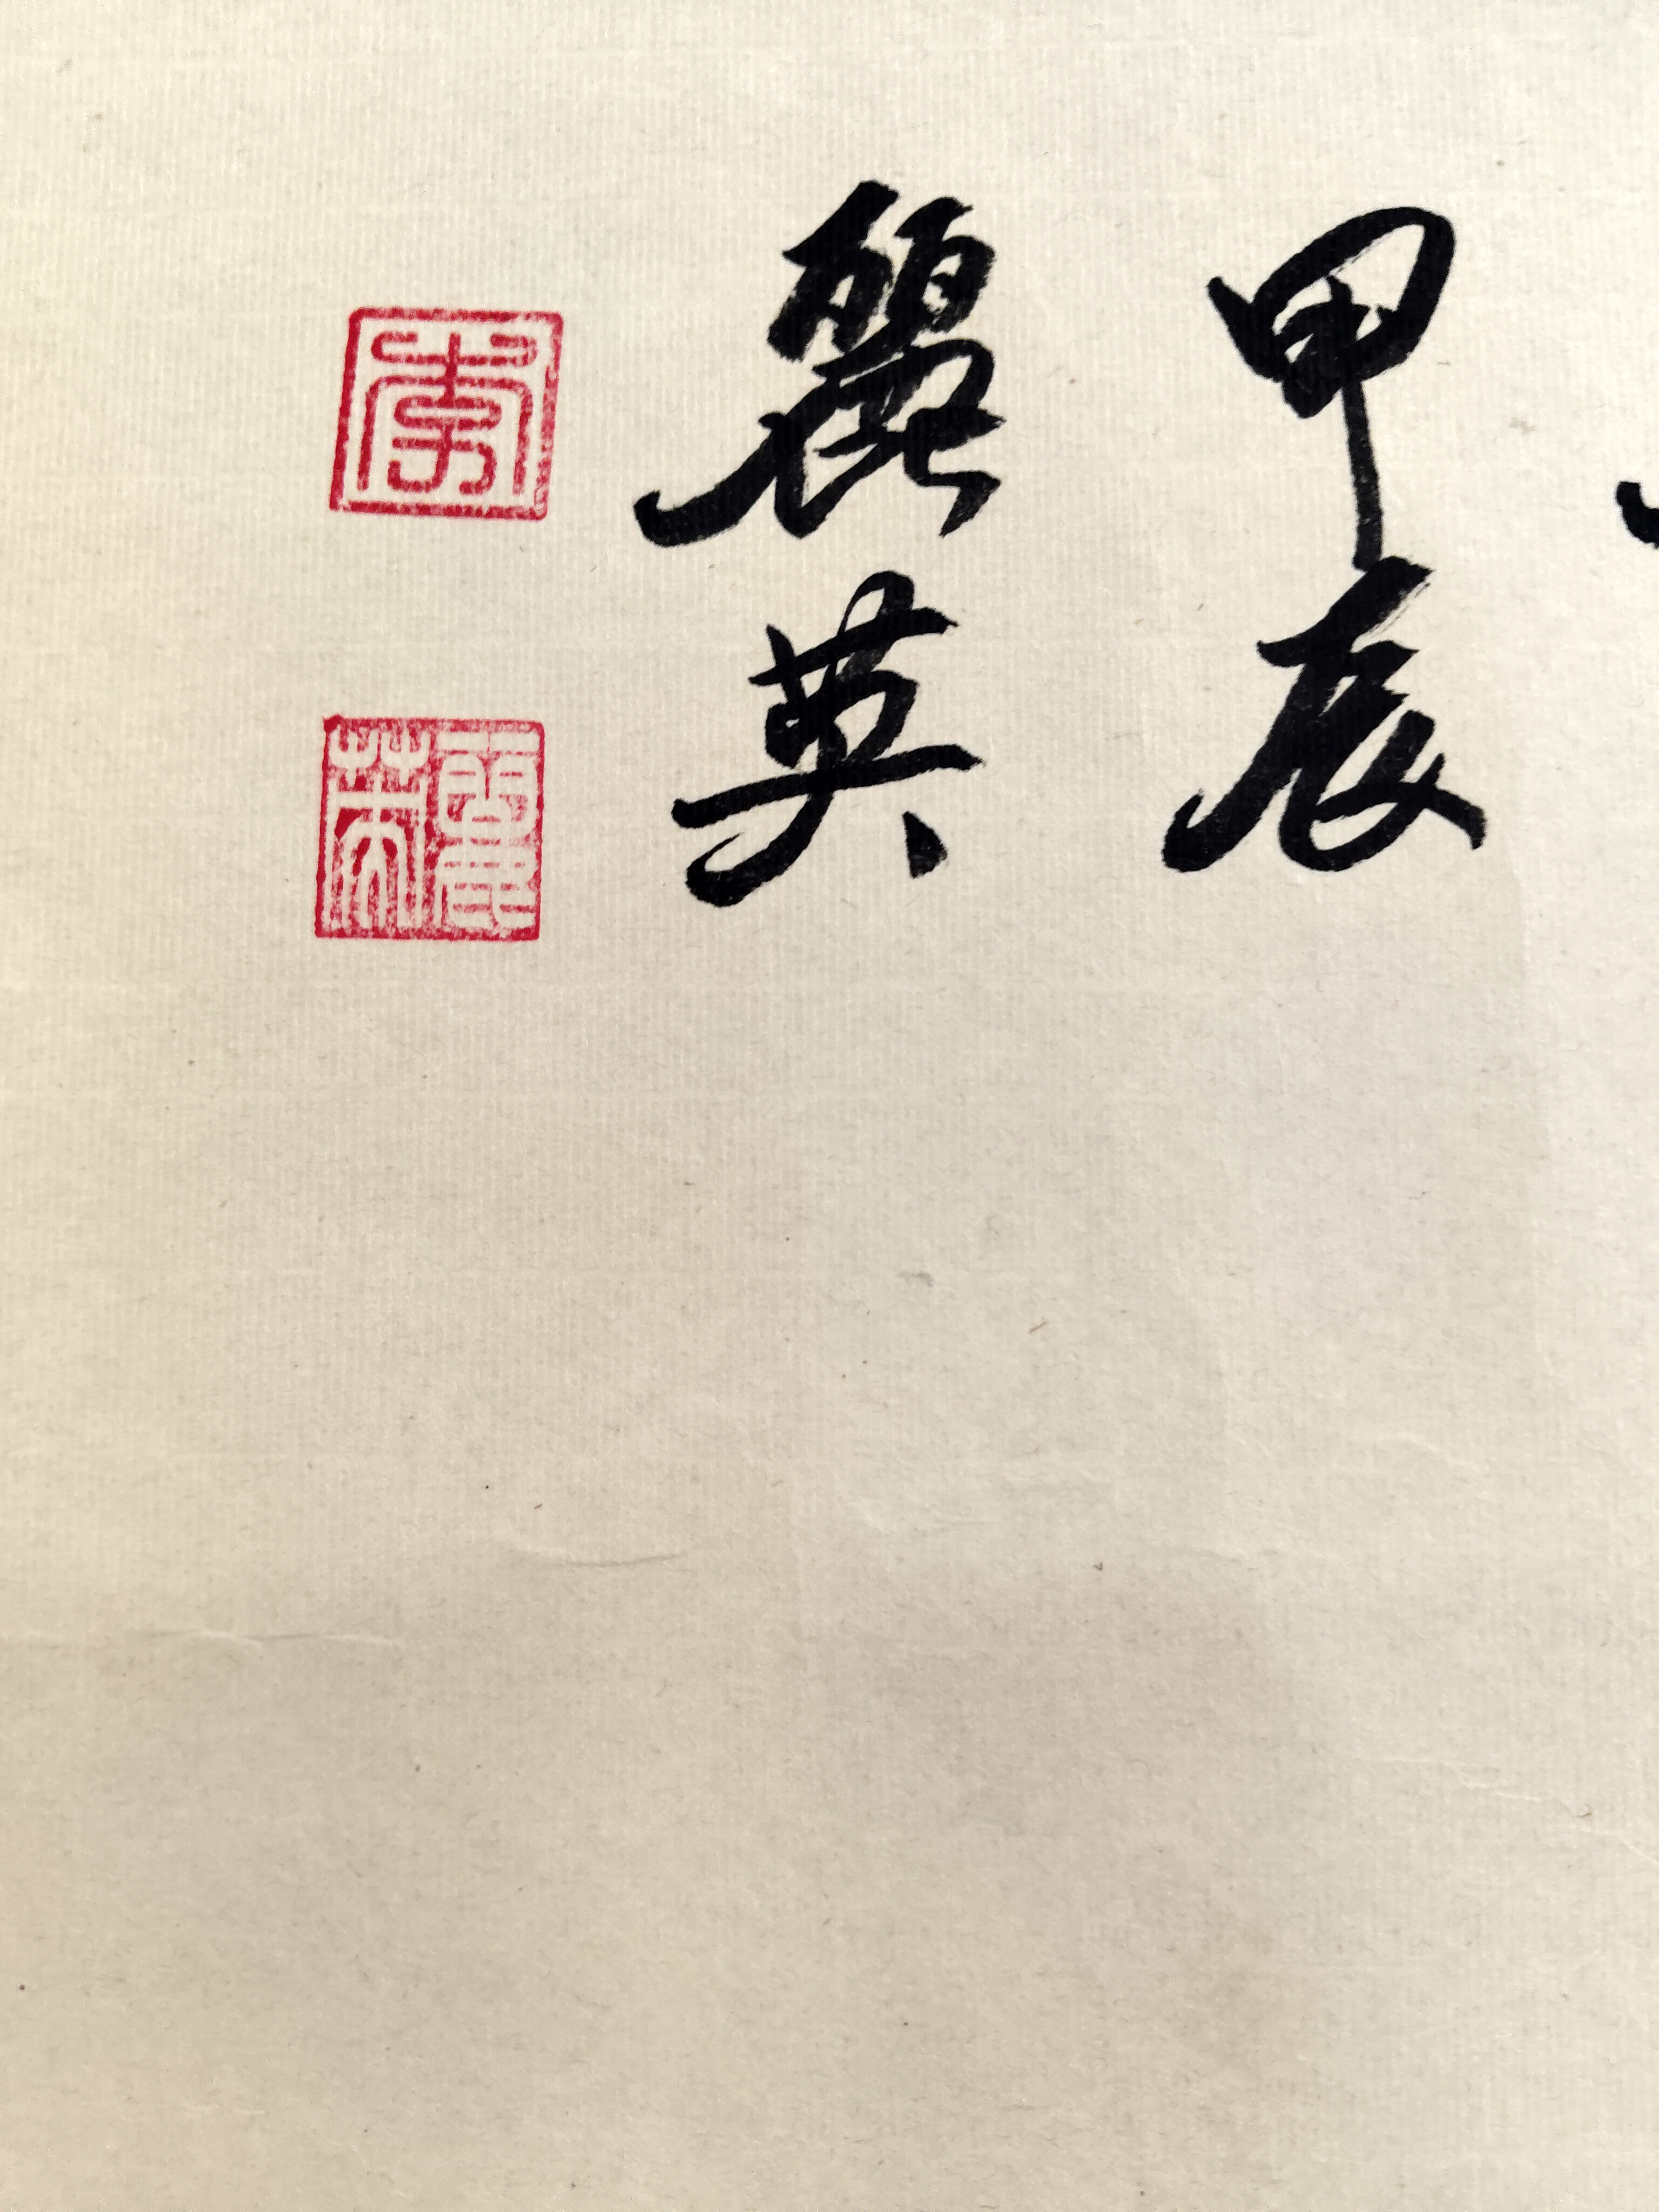 甲辰
麗英
李
麗英